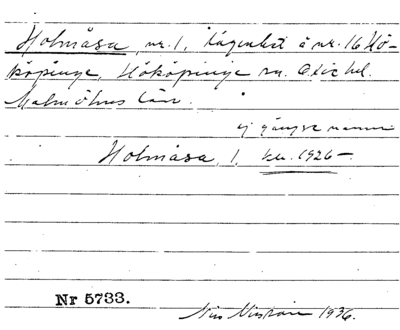 Holmåsa, nr. 1, lägenhet å nr. 16 Hö-
köpinge, Hököpinge sn. Oxie hd.
Malmöhus län.
ej gängse namn
Holmåsa, 1 1926-
Nr 5733.
Nils 1936.